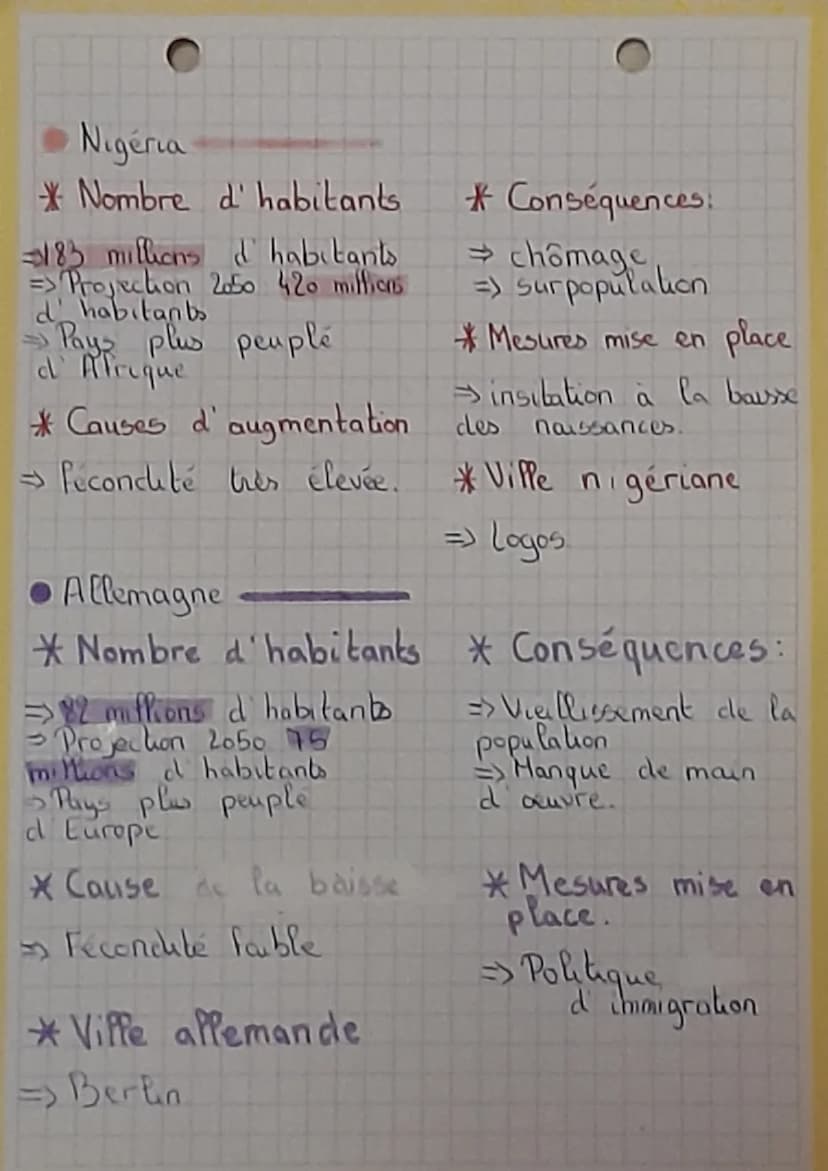 Nigéria
* Nombre d'habitants
=> 183 millions d'habitants
=> Projection 2050 420 millions
d'habitants
=> Pays plus peuplé
d'Afrique
* Causes d'augmentation
=> fécondité très élevée.
* Conséquences:
=> chômage
=> surpopulation
* Mesures mise en place
=> insitation à la baisse
des naissances.
* Ville nigériane
=> Logos
Allemagne
* Nombre d'habitants
=> 82 millions d'habitants
=> Projection 2050 75
millions d'habitants
=> Pays plus peuplé
d'Europe
* Cause de la baisse
=> Fécondité faible
* Ville allemande
=> Berlin
* Conséquences:
=> Vieillissement de la
population
=> Manque de main
d'œuvre.
* Mesures mise en
place.
=> Politique
d'immigration